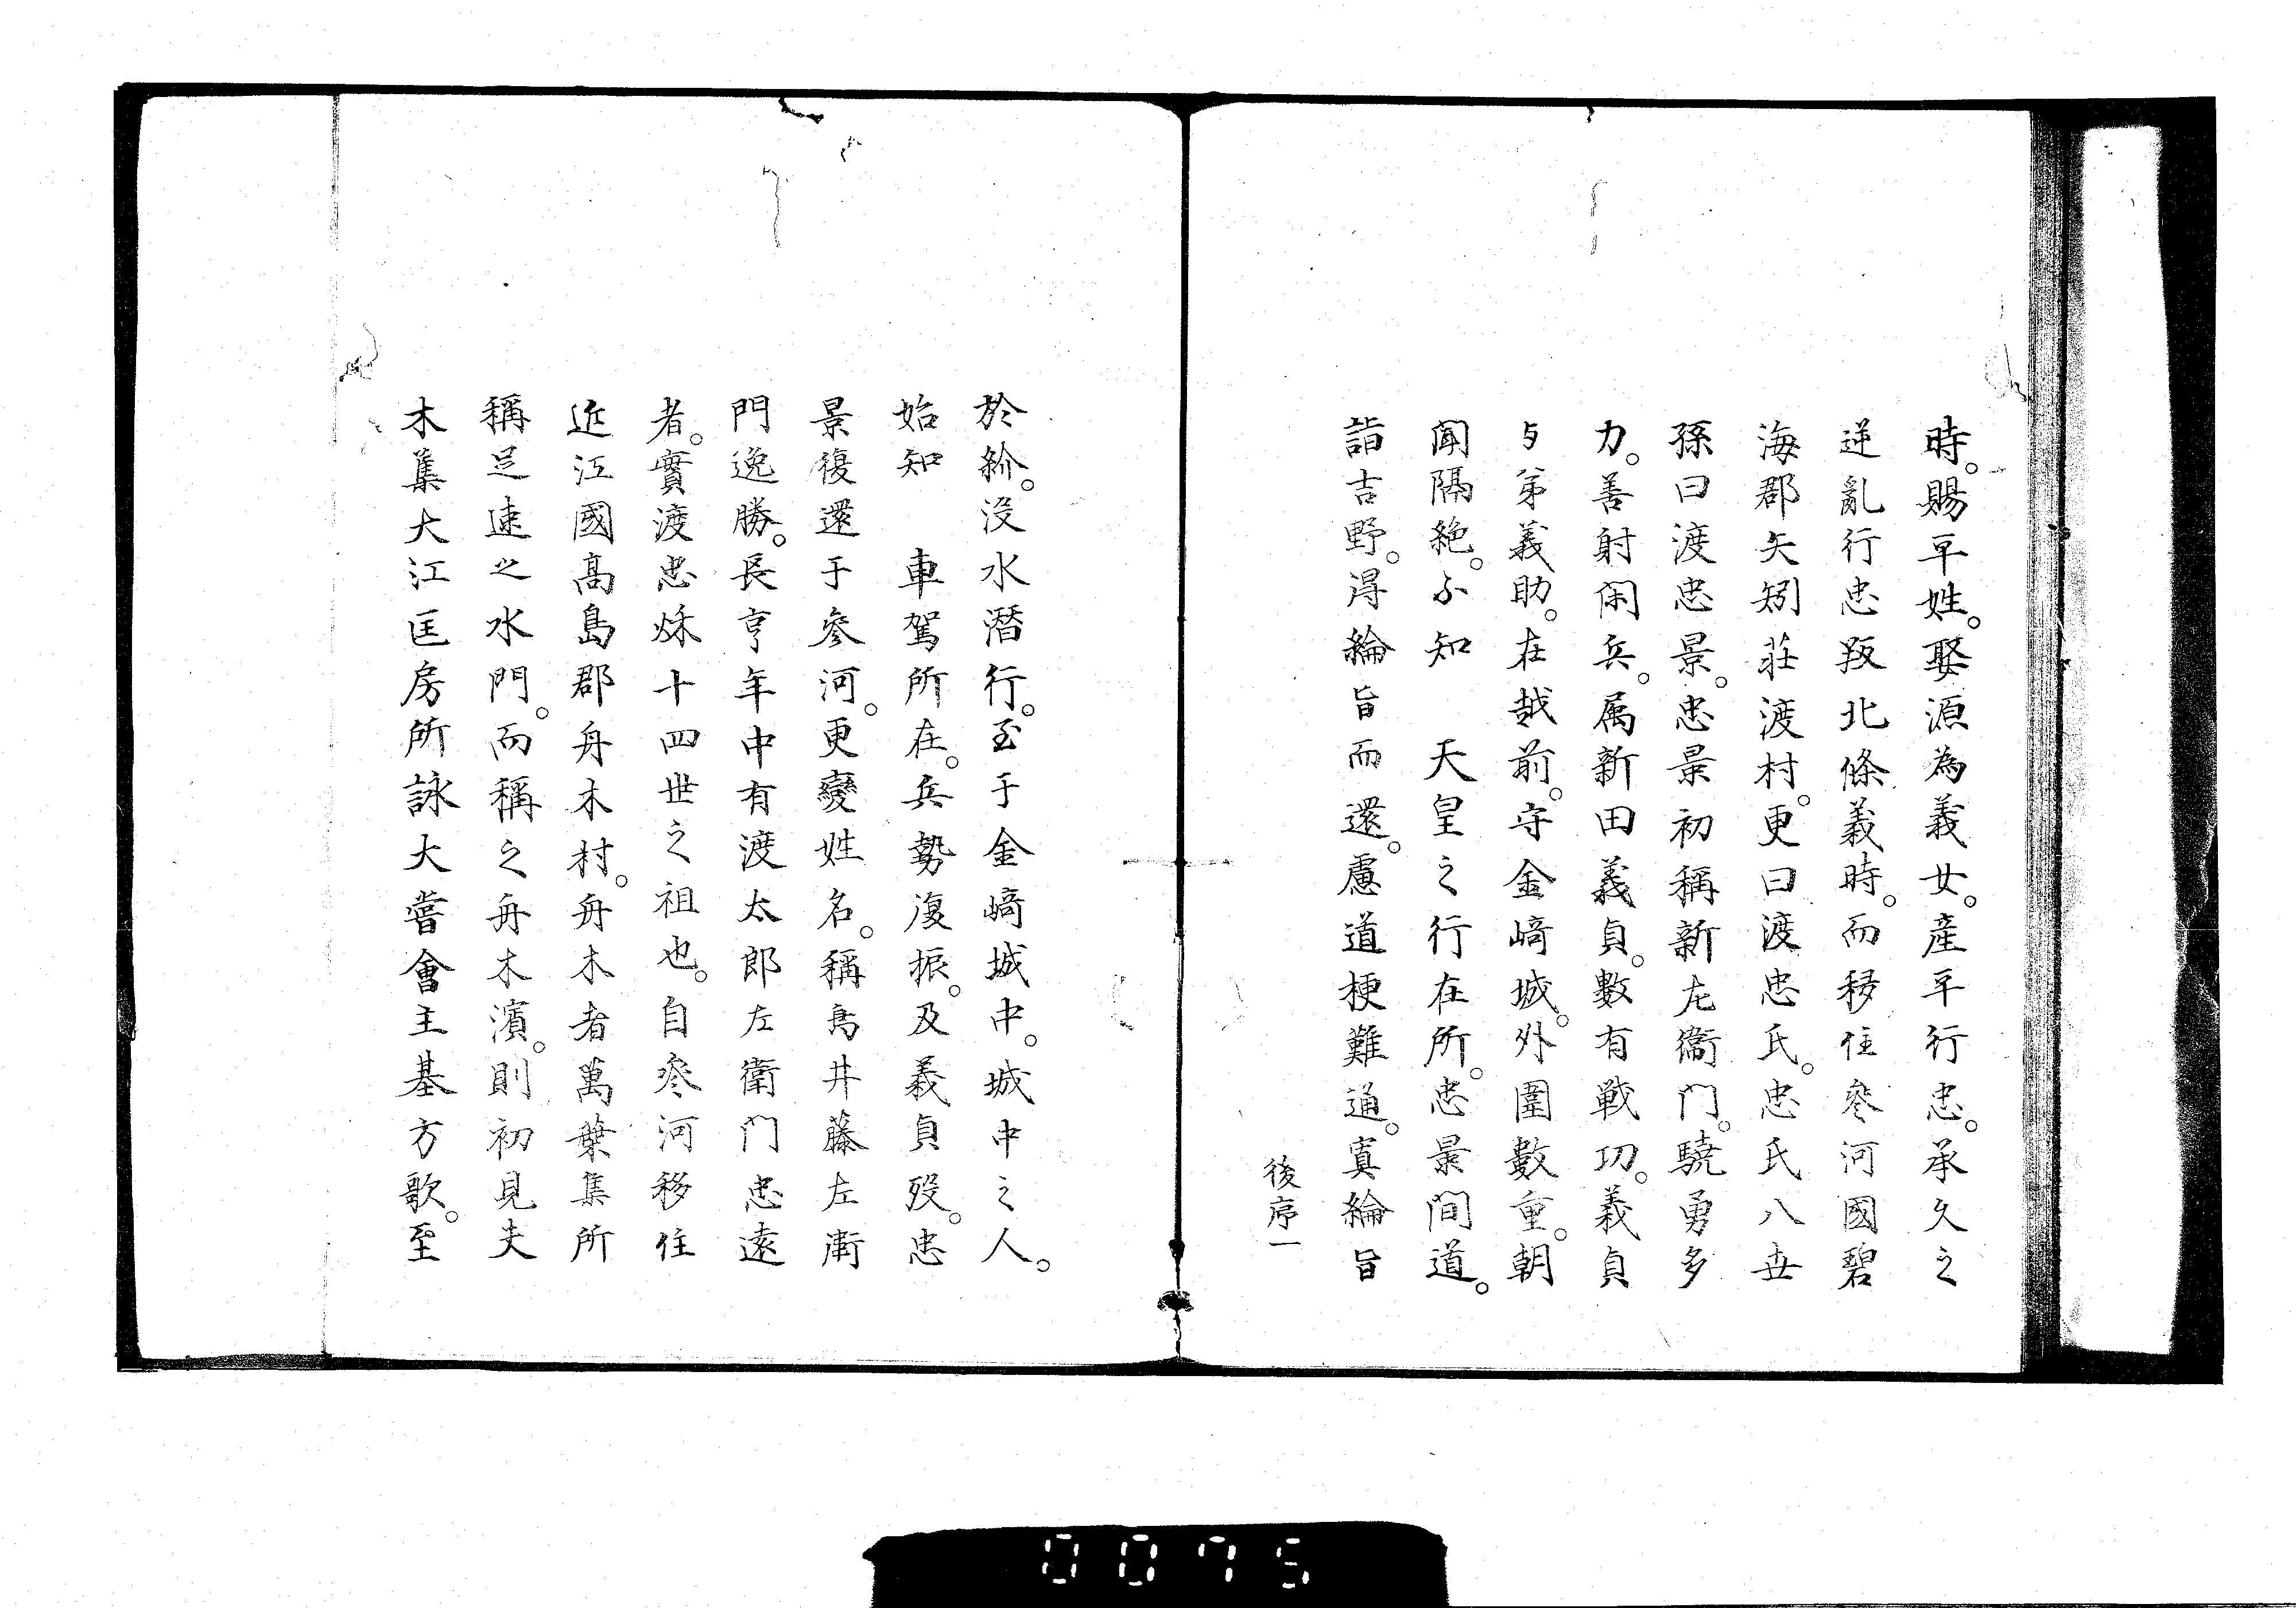 時。賜平姓。娶源為義女。産平行忠。承久之
逆亂行忠叛北條義時。而移住參河國碧
海郡矢矧荘渡村。更曰渡忠氏。忠氏八世
孫曰渡忠景。忠景初稱新左衛門。驍勇多
力。善射閑兵。属新田義貞。數有戦功。義貞
与弟義助。在越前。守金﨑城。外圍數重。朝
聞隔絶。不知　天皇之行在所。忠景間道。
詣吉野。得綸旨而還。慮道梗難通。寘綸旨
後序一
於紒。没水潜行。至于金﨑城中。城中之人。
始知　車駕所在。兵勢復振。及義貞歿。忠
景復還于參河。更變姓名。稱鳥井藤左衛
門逸勝。長亨年中有渡太郎左衛門忠遠
者。實渡忠秌十四世之祖也。自參河移住
近江國高島郡舟木村。舟木者萬葉集所
稱足速之水門。而稱之舟木濱。則初見夫
木集大江匡房所詠大嘗會主基方歌。至
0075